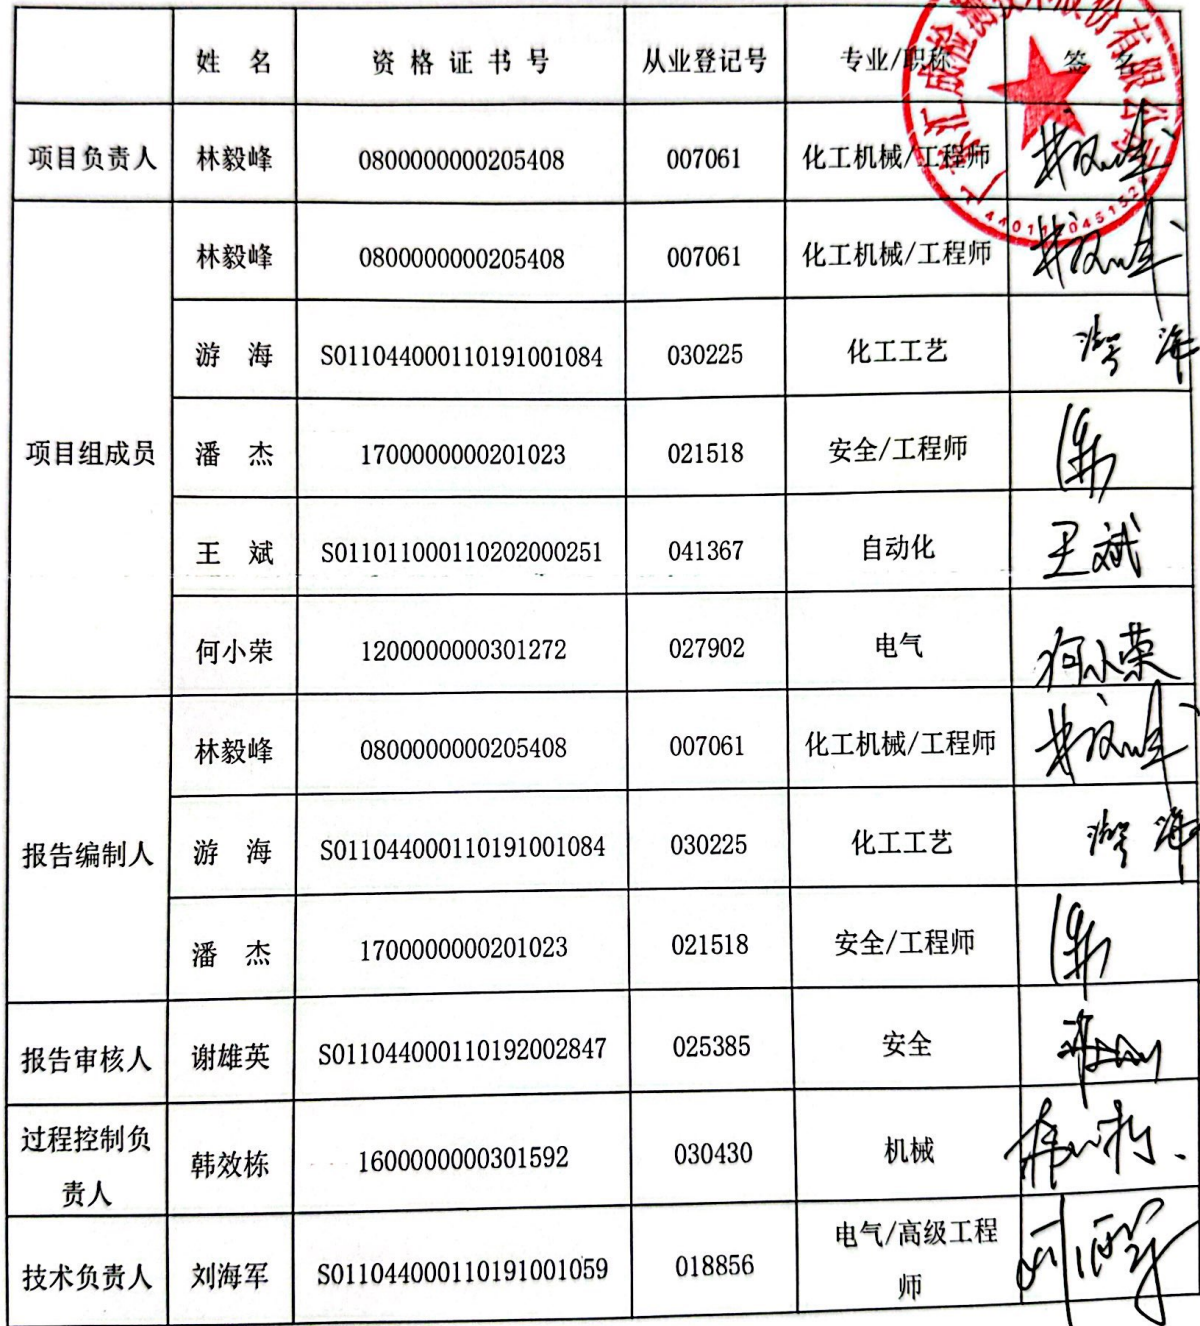 姓 名 资格证书号 从业登记号 专业/职称 签 名
项目负责人 林毅峰 0800000000205408 007061 化工机械/工程师 林毅峰
项目组成员 林毅峰 0800000000205408 007061 化工机械/工程师 林毅峰
游 海 S011044000110191001084 030225 化工工艺 游海
潘 杰 1700000000201023 021518 安全/工程师
王 斌 S011011000110202000251 041367 自动化 王斌
何小荣 1200000000301272 027902 电气 何小荣
报告编制人 林毅峰 0800000000205408 007061 化工机械/工程师 林毅峰
游 海 S011044000110191001084 030225 化工工艺 游海
潘 杰 1700000000201023 021518 安全/工程师
报告审核人 谢雄英 S011044000110192002847 025385 安全
过程控制负
责人 韩效栋 1600000000301592 030430 机械
技术负责人 刘海军 S011044000110191001059 018856 电气/高级工程
师 刘海军
汇成检测技术股份有限公司